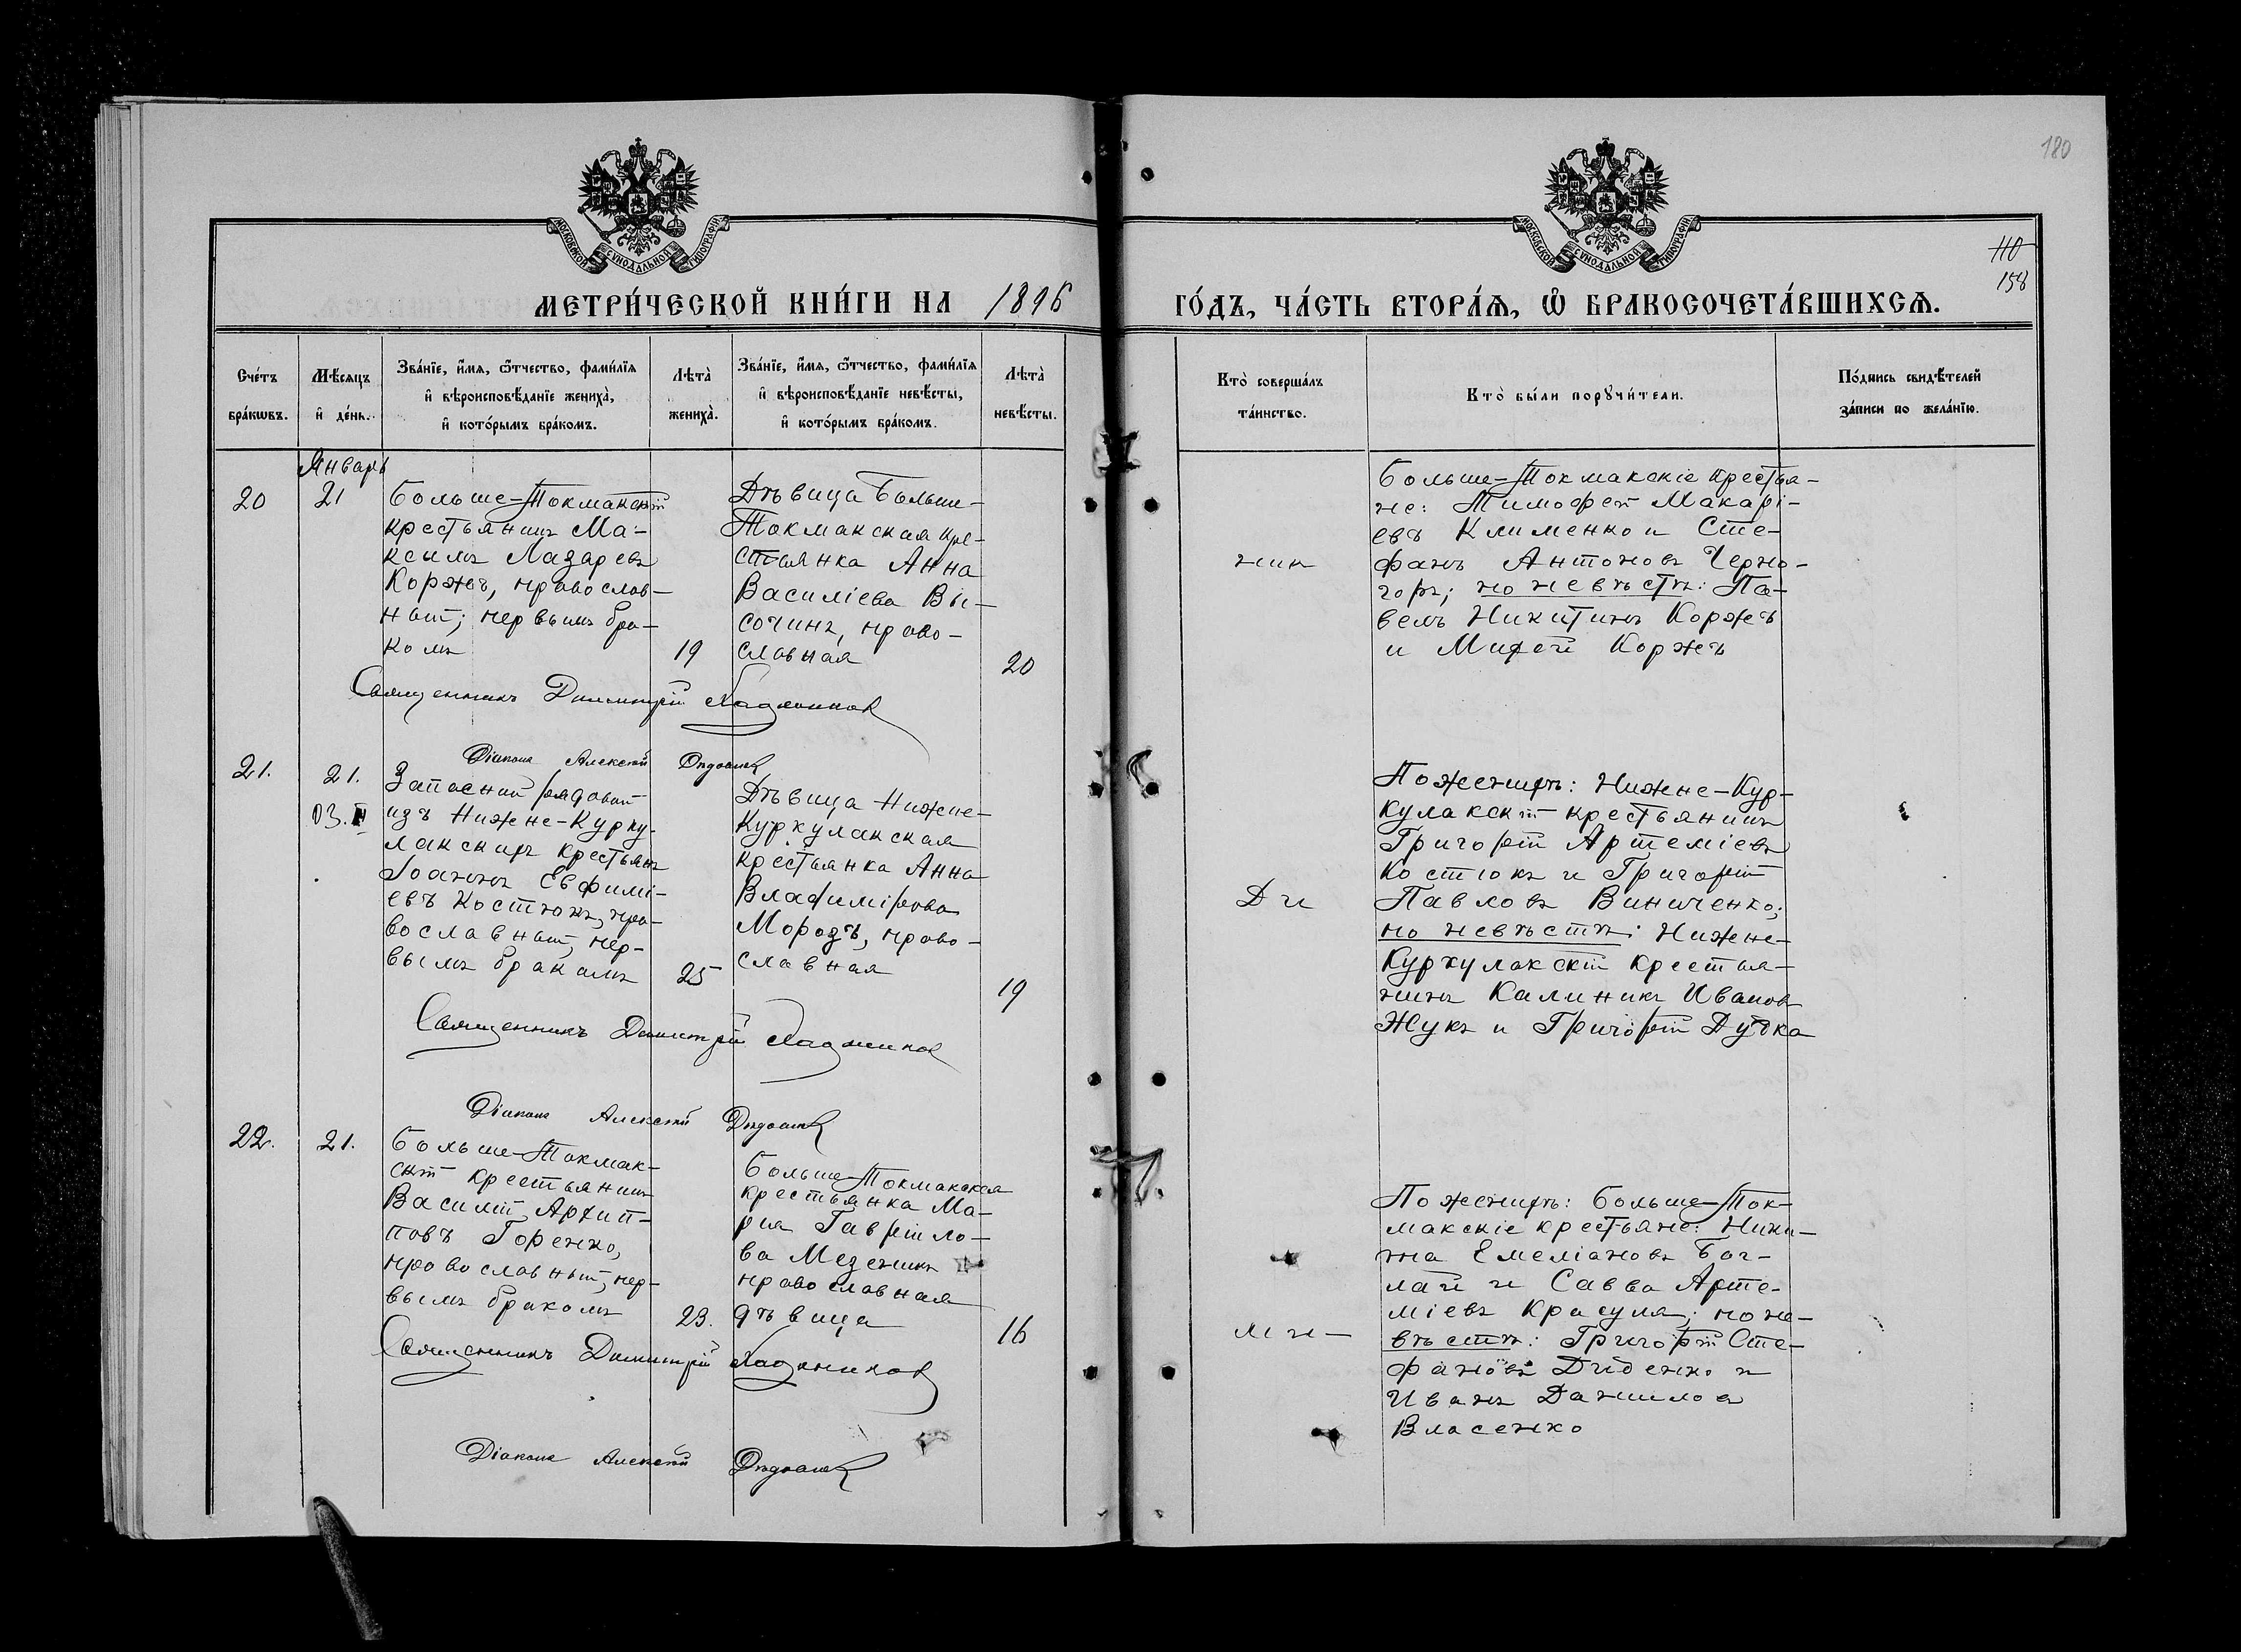 180
МОСКОВСКОЙ СУНОДАЛЬНОЙ ТИПОГРАФІИ
МОСКОВСКОЙ СУНОДАЛЬНОЙ ТИПОГРАФІИ
110
158
МЕТРИ́ЧЕСКОЙ КНИ́ГИ НА 1896
ГО́ДЪ, ЧА́СТЬ ВТОРА́Ѧ, Ѽ БРАКОСОЧЕТА́ВШИХСѦ.
Сче́тъ
бра́кѡвъ.
Мѣ́сѧцъ
и҆ де́нь.
Зва́нїе, и҆́мѧ, ѻ҆́тчество, фами́лїѧ
и҆ вѣроисповѣ́данїе жениха̀,
и҆ кото́рымъ бра́комъ.
Лѣта̀
жениха̀.
Зва́нїе, и҆́мѧ, ѻ҆́тчество, фами́лїѧ
и҆ вѣроисповѣ́данїе невѣ́сты,
и҆ кото́рымъ бра́комъ.
Лѣта̀
невѣ́сты.
Кто̀ соверша́лъ
та́инство.
Кто̀ бы́ли порꙋчи́тели.
По́дпись свидѣ́телей
за́писи по жела́нїю.
Январь
20
21
Больше-Токмакскій
крестьянинъ Ма-
ксимъ Лазаревъ
Коржъ, православ-
ный; первымъ бра-
комъ
19
Дѣвица Больше-
Токмакская кре-
стьянка Анна
Василіева Вы-
сочинъ, право-
славная
20
Больше-Токмакскіе крестья-
не: Тимофей Макарі-
евъ Клименко и Сте-
фанъ Антоновъ Черно-
горъ; по невѣстѣ: Па-
велъ Никитинъ Коржъ
и Михей Коржъ
Священникъ Димитрій
Діаконъ Алексѣй
21.
21.
Запасный рядовой
изъ Нижне-Курку-
лакскихъ крестьянъ
Іоаннъ Евфимі-
евъ Костюкъ, пра-
вославный, пер-
вымъ бракомъ
25
Дѣвица Нижне-
Куркулакская
крестьянка Анна
Владимірова
Морозъ, право-
славная
19
По женихѣ: Нижне-Кур-
кулакскій крестьянинъ
Григорій Артеміевъ
Костюкъ и Григорій
Павловъ Виниченко;
по невѣстѣ: Нижне-
Куркулакскій крестья-
нинъ Калиникъ Ивановъ
Жукъ и Григорій Дудка
Священникъ Димитрій
Діаконъ Алексѣй
22.
21.
Больше-Токмак-
скій крестьянинъ
Василій Архип-
повъ Горенко,
православный, пер-
вымъ бракомъ
23.
Больше-Токмакская
крестьянка Ма-
рия Гавріило-
ва Мезенинъ
православная
дѣвица
16
По женихѣ: Больше-Ток-
макскіе крестьяне: Ники-
та Емеліановъ Бог-
лай и Савва Арте-
міевъ Красуля; по не-
вѣстѣ: Григорій Сте-
фановъ Диденко и
Иванъ Даниловъ
Власенко
Священникъ Димитрій
Діаконъ Алексѣй